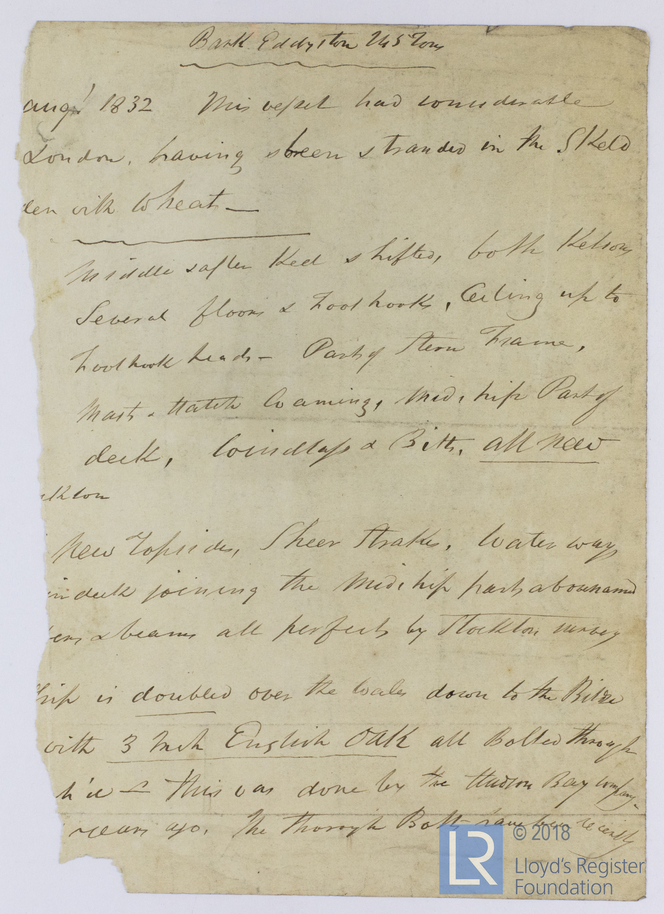 Bark Eddyston 245 Tons
augt 1832 This vessel had considerable
London, having been stranded in the Skeld
den with Wheat—
Middle & after Keel shifted, both Kelsons
Several floors & foothooks, Ceiling up to
foothook heads— Part of Stern Frame,
Mast & Hatch Coamings, Midship Part of
deck, Windlass & Bitts, all new
ckton
New Topsides, Sheer Strakes, Water ways
deck joining the Midship part abovenamed
& beams all perfect by Stockton survey
hip is doubled over the Wales down to the Bilge
with 3 Inch English Oak all Bolted through
This was done by the Hudson Bay Company
years ago, The thorough Bolts have been recently
LR © 2018
Lloyd's Register
Foundation